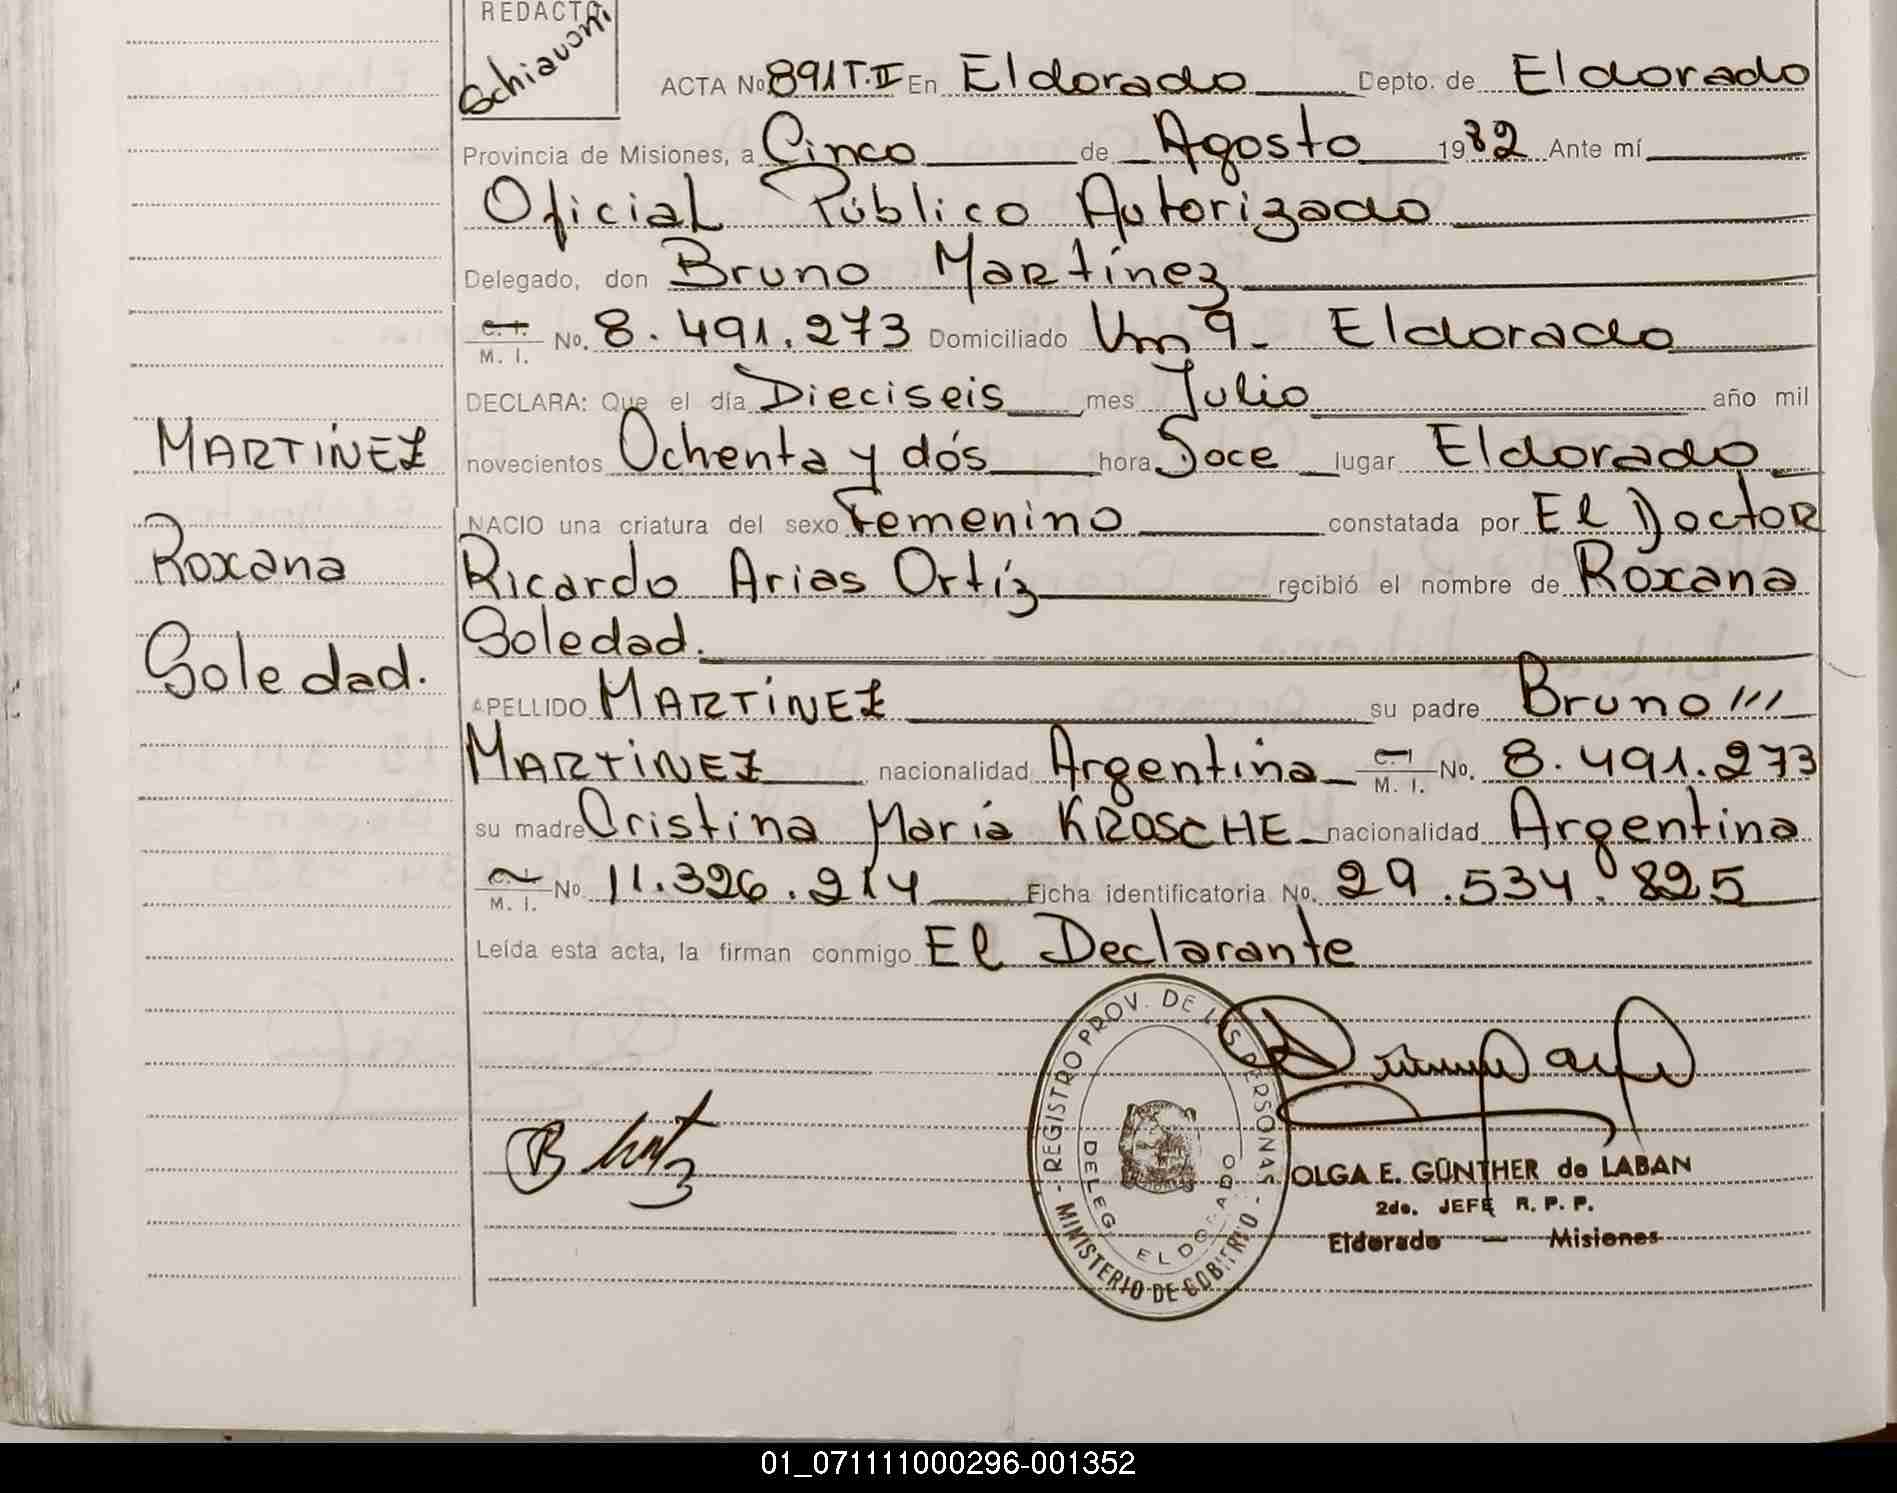 REDACTO
Schiavoni
ACTA No 891 T.II En Eldorado Depto. de Eldorado
Provincia de Misiones, a Cinco de Agosto 1982 Ante mí
Oficial Público Autorizado
Delegado, don Bruno Martínez
C. I. M. I. No. 8.491.273 Domiciliado Km 9 - Eldorado
DECLARA: Que el día Dieciseis mes Julio año mil
novecientos Ochenta y dós hora Doce lugar Eldorado
NACIO una criatura del sexo Femenino constatada por El Doctor
Ricardo Arias Ortíz recibió el nombre de Roxana
Soledad.
APELLIDO MARTÍNEZ su padre Bruno
MARTÍNEZ nacionalidad Argentina C. I. M. I. No. 8.491.273
su madre Cristina María KROSCHE nacionalidad Argentina
C. I. M. I. No. 11.326.214 Ficha identificatoria No. 29.534.825
Leída esta acta, la firman conmigo El Declarante
MARTÍNEZ
Roxana
Soledad.
REGISTRO PROV. DE LAS PERSONAS
DELEG. ELDORADO
MINISTERIO DE GOBIERNO
OLGA E. GÜNTHER de LABAN
2do. JEFE R. P. P.
Eldorado — Misiones
01_071111000296-001352